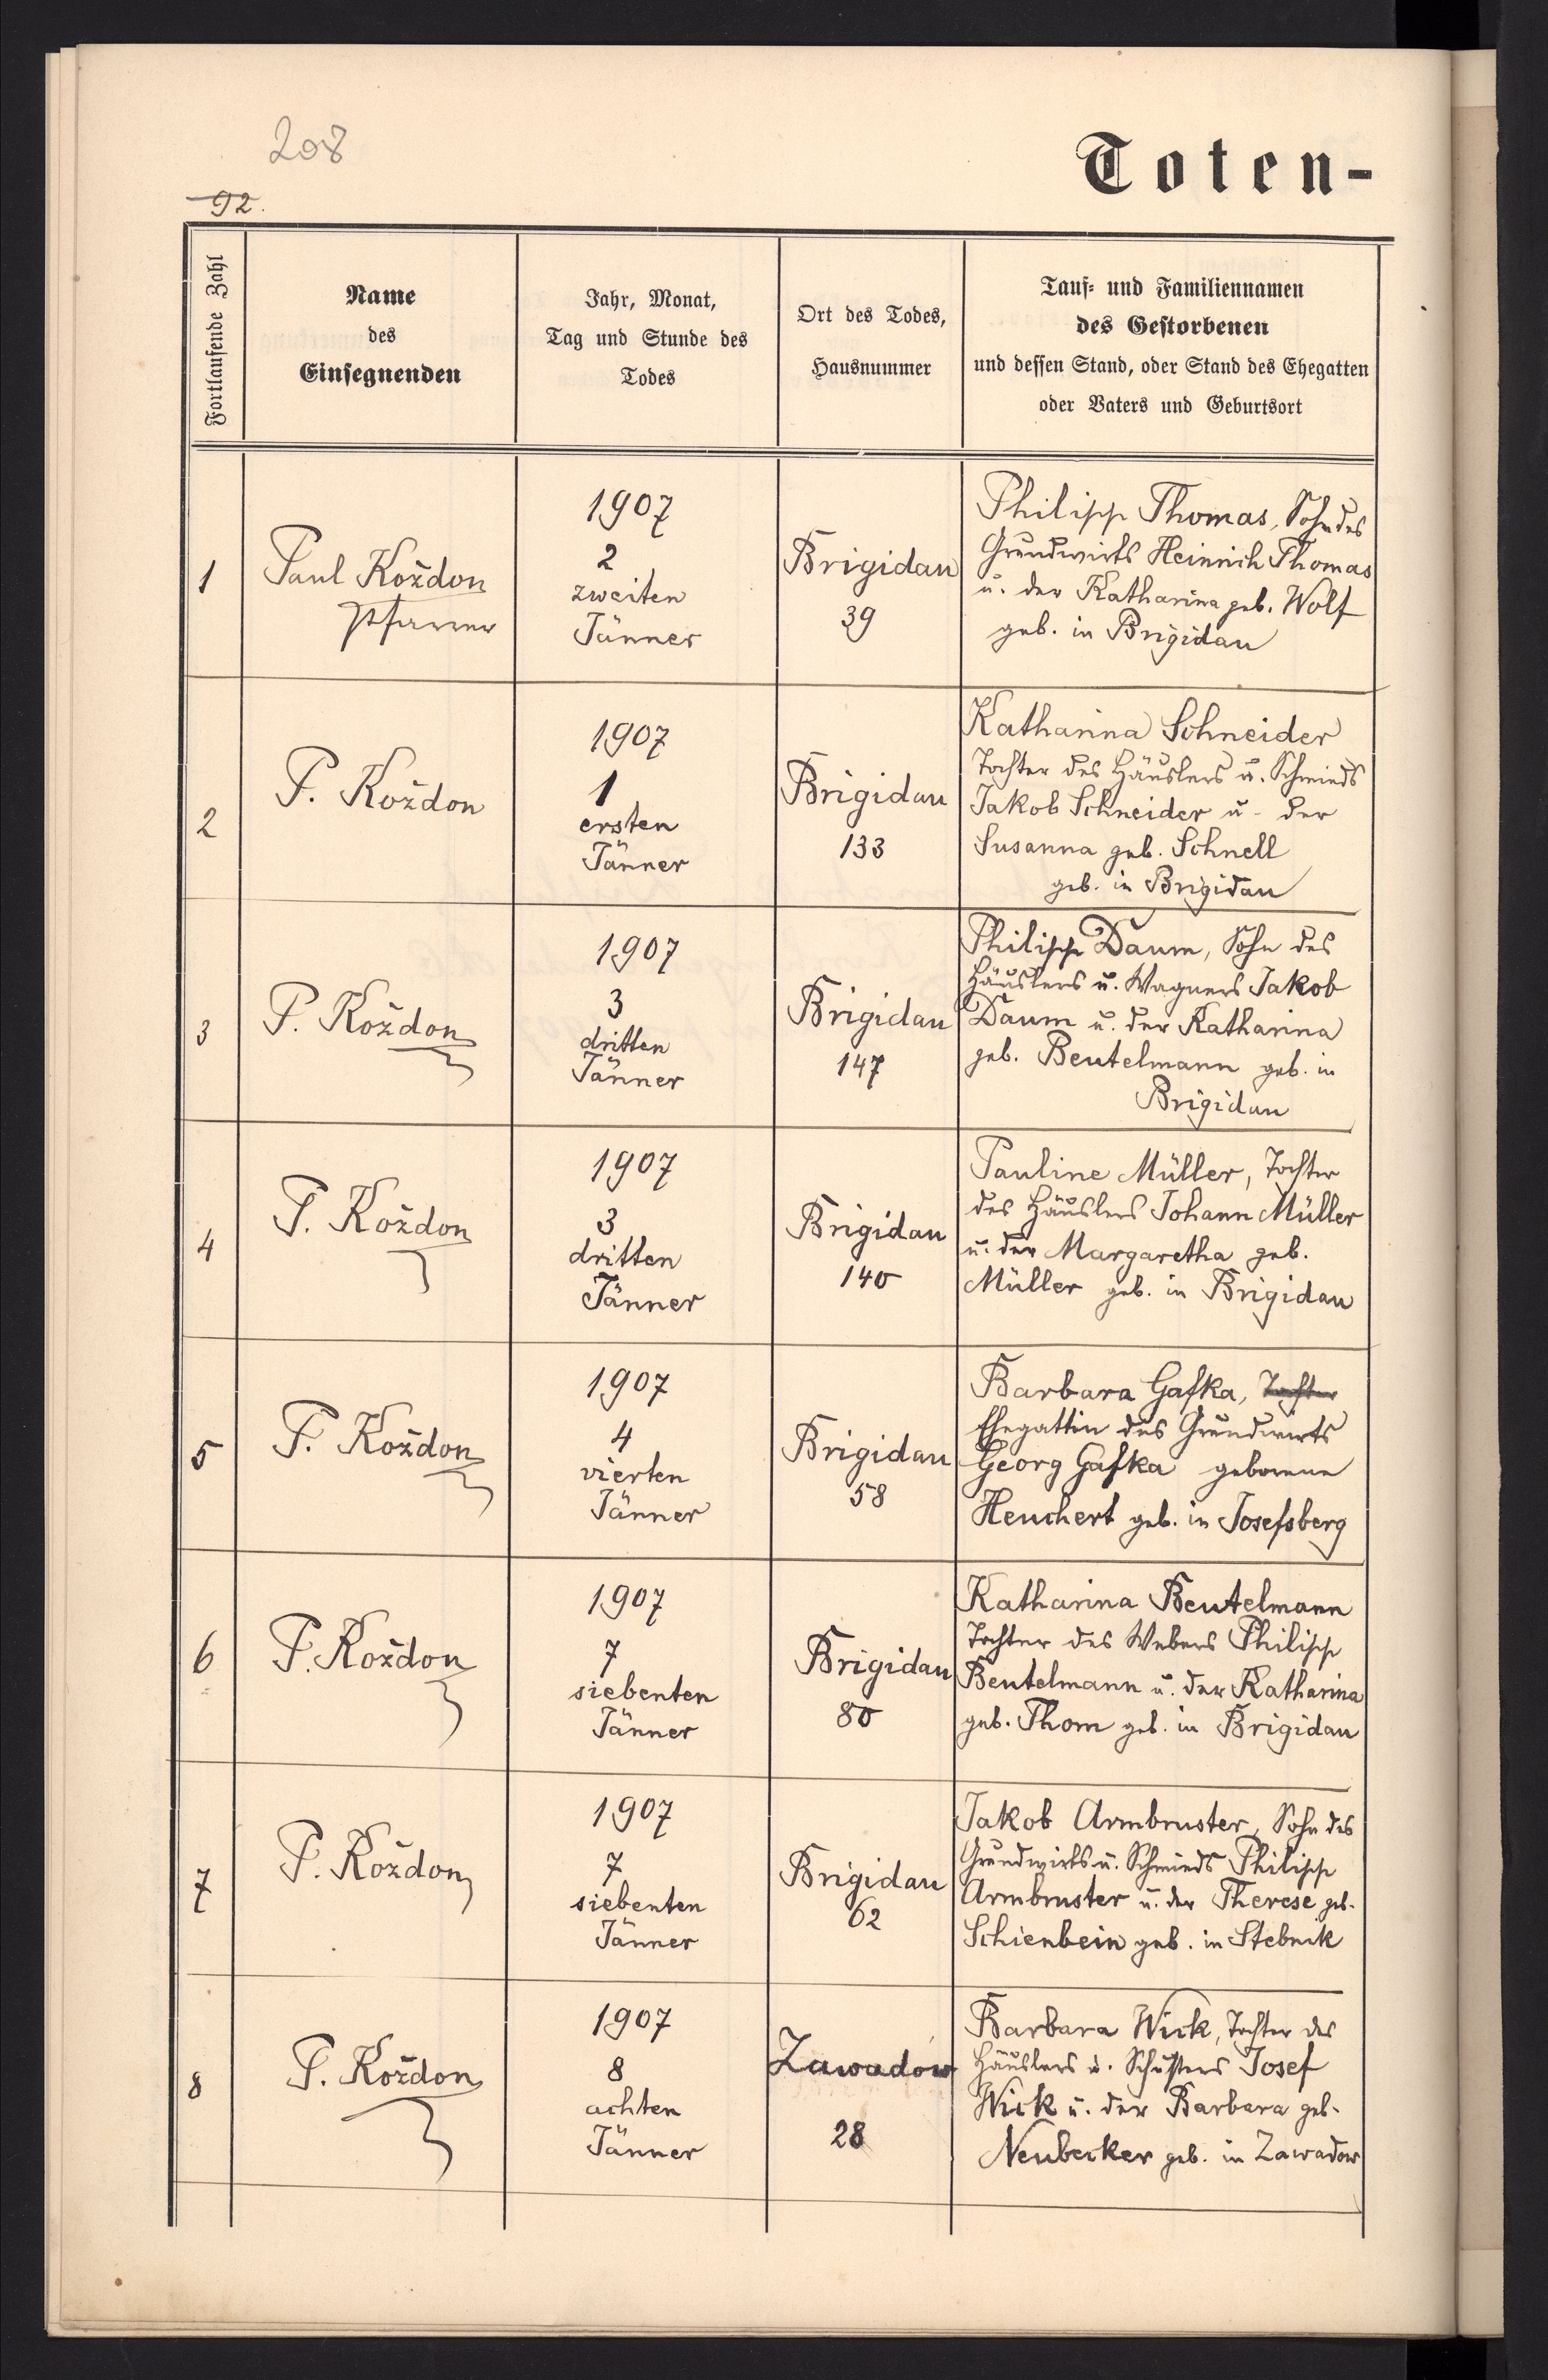 208
92.
Toten-
Fortlaufende Zahl
Name
des
Einsegnenden
Jahr, Monat,
Tag und Stunde des
Todes
Ort des Todes,
Hausnummer
Tauf- und Familiennamen
des Gestorbenen
und dessen Stand, oder Stand des Ehegatten
oder Vaters und Geburtsort
1
Paul Koždon
Pfarrer
1907
2
zweiten
Jänner
Brigidau
39
Philipp Thomas, Sohn des
Grundwirts Heinrich Thomas
u. der Katharina geb. Wolf
geb. in Brigidau
2
P. Koždon
1907
1
ersten
Jänner
Brigidau
133
Katharina Schneider
Tochter des Häuslers u. Schmieds
Jakob Schneider u. der
Susanna geb. Schnell
geb. in Brigidau
3
P. Koždon
1907
3
dritten
Jänner
Brigidau
147
Philipp Daum, Sohn des
Häuslers u. Wagners Jakob
Daum u. der Katharina
geb. Beutelmann geb. in
Brigidau
4
P. Koždon
1907
3
dritten
Jänner
Brigidau
140
Pauline Müller, Tochter
des Häuslers Johann Müller
u. der Margaretha geb.
Müller geb. in Brigidau
5
P. Koždon
1907
4
vierten
Jänner
Brigidau
58
Barbara Gafka, Tochter
Ehegattin des Grundwirts
Georg Gafka geborene
Heuchert geb. in Josefsberg
6
P. Koždon
1907
7
siebenten
Jänner
Brigidau
80
Katharina Beutelmann
Tochter des Webers Philipp
Beutelmann u. der Katharina
geb. Thom geb. in Brigidau
7
P. Koždon
1907
7
siebenten
Jänner
Brigidau
62
Jakob Armbruster, Sohn des
Grundwirts u. Schmieds Philipp
Armbruster u. der Therese geb.
Schienbein geb. in Stebnik
8
P. Koždon
1907
8
achten
Jänner
Zawadów
28
Barbara Wick, Tochter des
Häuslers u. Schusters Josef
Wick u. der Barbara geb.
Neubecker geb. in Zawadow